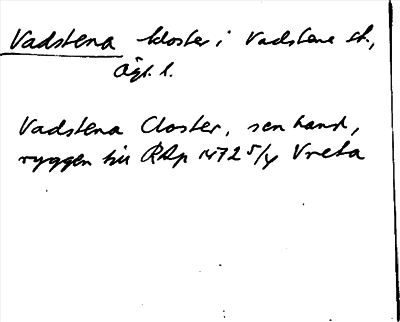 Vadstena kloster i Vadstena st.,
Ögl. l.
Vadstena Closter, sen hand,
ryggen till RAp 1472 5/4 Vreta